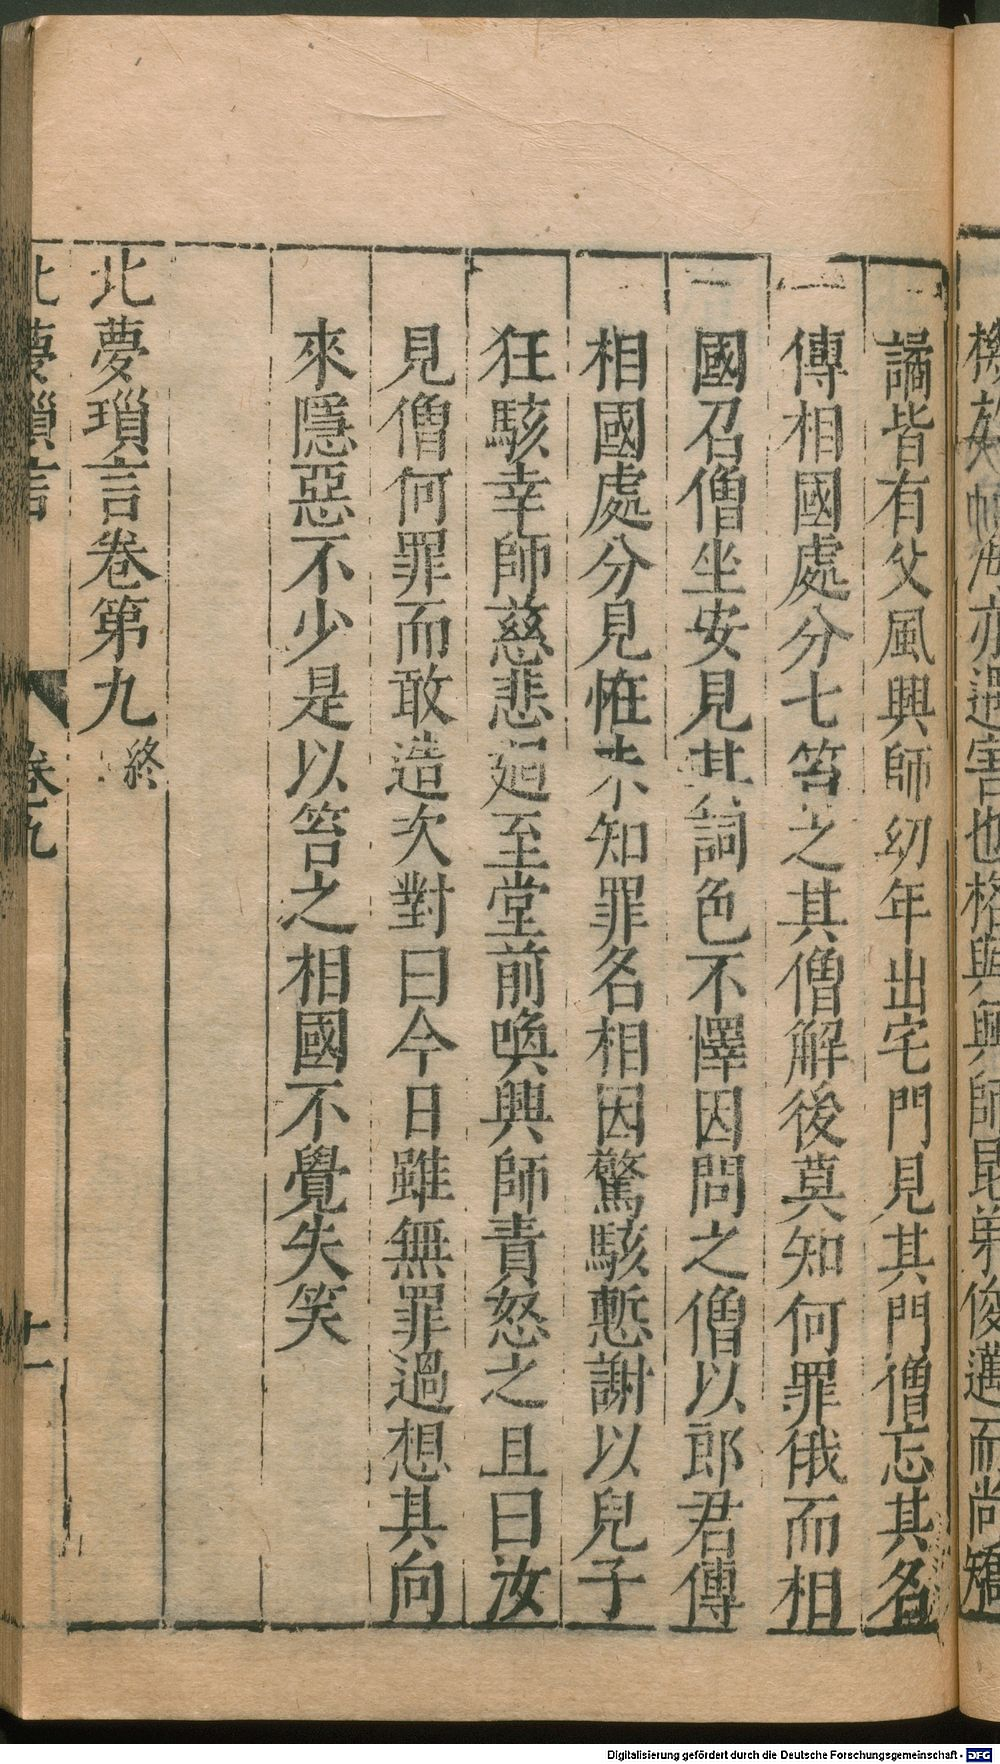 譎皆有父風興師幼年出宅門見其門僧忘其名
傳相國處分七笞之其僧解後莫知何罪俄而相
國召僧坐安見其詞色不懌因問之僧以郎君傳
相國處分見恠未知罪名相因驚駭慙謝以兒子
狂駭幸師慈悲廻至堂前喚興師責怒之且曰汝
見僧何罪而敢造次對曰今日雖無罪過想其向
來隱惡不少是以笞之相國不覺失笑
北夢瑣言卷第九 終
北夢瑣言 卷九 十一
Digitalisierung gefördert durch die Deutsche Forschungsgemeinschaft - DFG